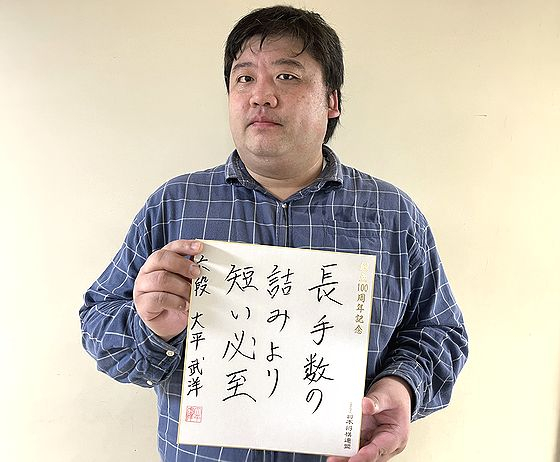 100周年記念
長手数の
詰みより
短い必至
六段 大平 武洋
日本将棋連盟